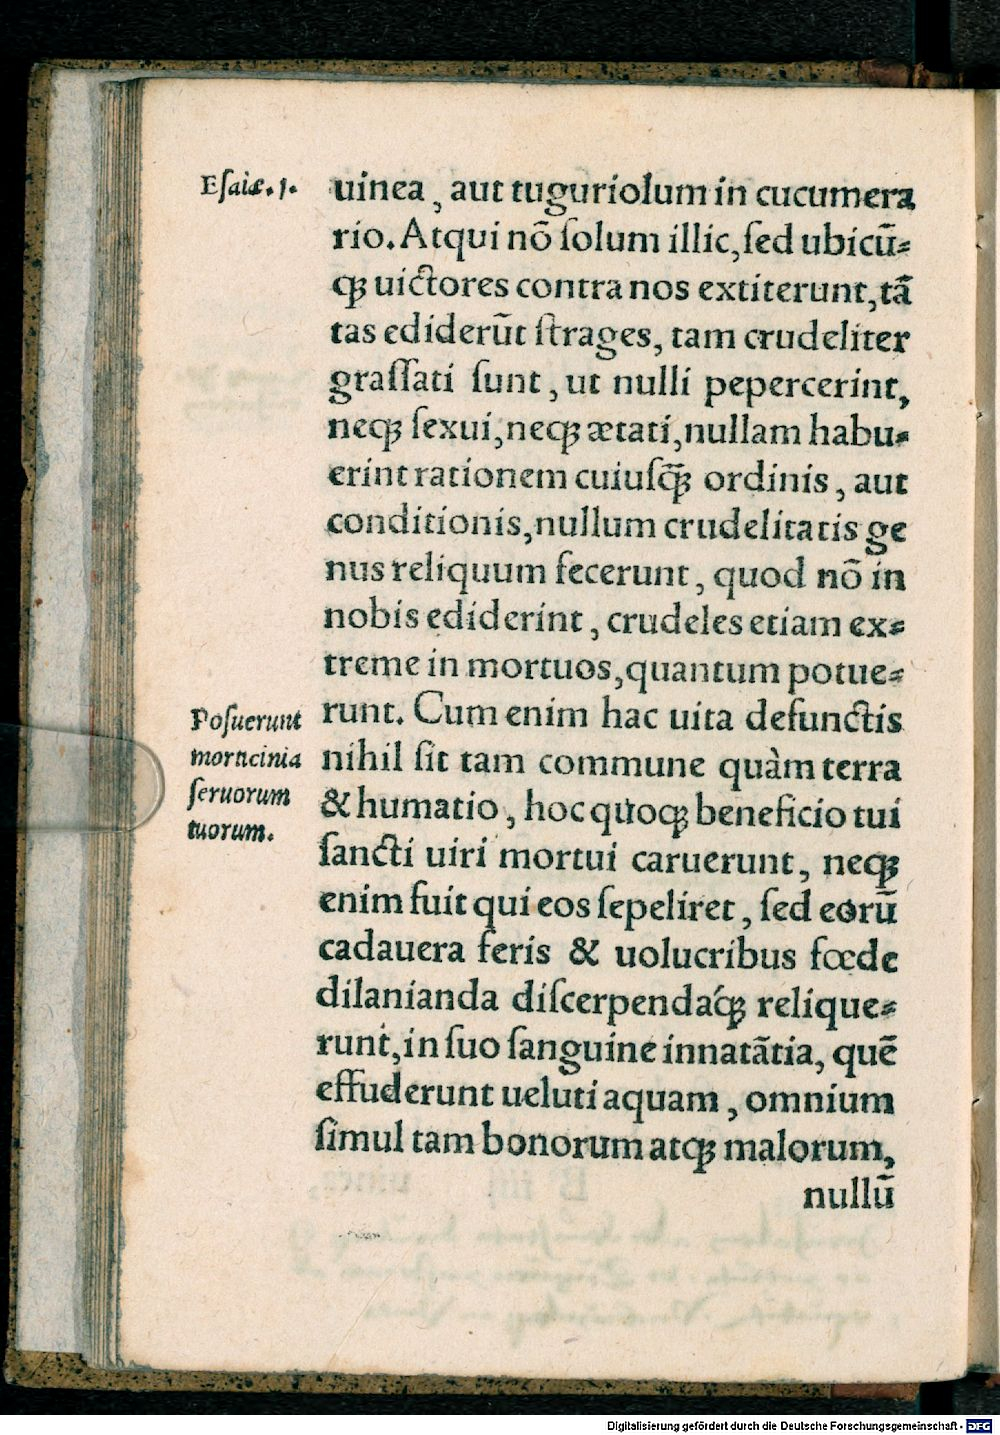 Esaiæ. 1.
uinea, aut tuguriolum in cucumera
rio. Atqui nõ ſolum illic, ſed ubicũ⸗
qꝫ uictores contra nos extiterunt, tã
tas ediderũt ſtrages, tam crudeliter
graſſati ſunt, ut nulli pepercerint,
neqꝫ ſexui, neqꝫ ætati, nullam habu⸗
erint rationem cuiuſq̃ꝫ ordinis, aut
conditionis, nullum crudelitatis ge
nus reliquum fecerunt, quod nõ in
nobis ediderint, crudeles etiam ex⸗
treme in mortuos, quantum potue⸗
runt. Cum enim hac uita defunctis
nihil ſit tam commune quàm terra
& humatio, hoc quoqꝫ beneficio tui
ſancti uiri mortui caruerunt, neqꝫ
enim fuit qui eos ſepeliret, ſed eorũ
cadauera feris & uolucribus fœde
dilanianda diſcerpendaq́ꝫ relique⸗
runt, in ſuo ſanguine innatãtia, quẽ
effuderunt ueluti aquam, omnium
ſimul tam bonorum atqꝫ malorum,
nullũ
Poſuerunt
morticinia
ſeruorum
tuorum.
Digitalisierung gefördert durch die Deutsche Forschungsgemeinschaft - DFG